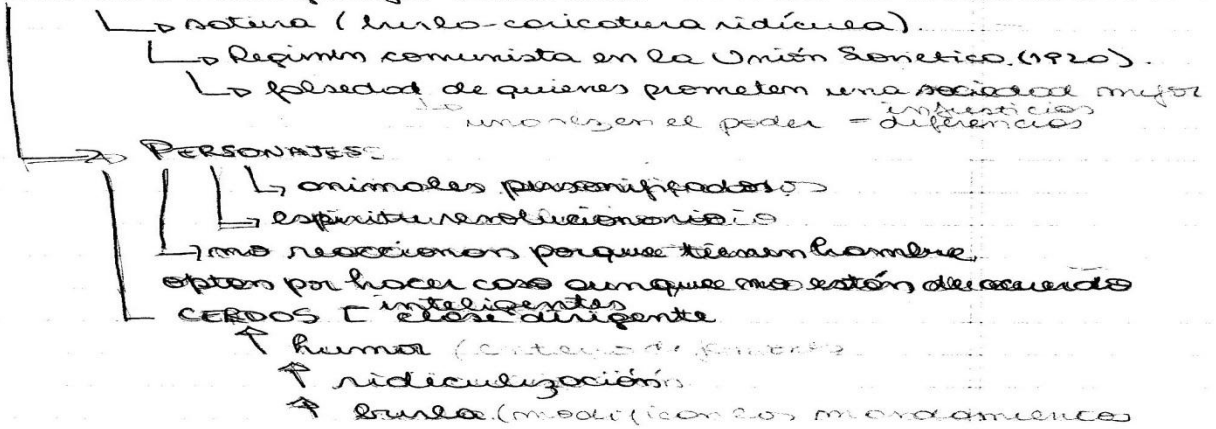 ↳ sátira (burla-caricatura ridícula).
↳ Regimen comunista en la Unión Sovietica. (1920).
↳ falsedad de quienes prometen una sociedad mejor
↳ injusticias
una vez en el poder = diferencias
PERSONAJES:
↳ animales personificados
↳ espiritu revolucionario
↳ no reaccionan porque tienen hambre
optan por hacer caso aunque no están de acuerdo
inteligentes
CERDOS [ clase dirigente
↑ humor (
↑ ridiculización
↑ burla (modifican los mandamientos